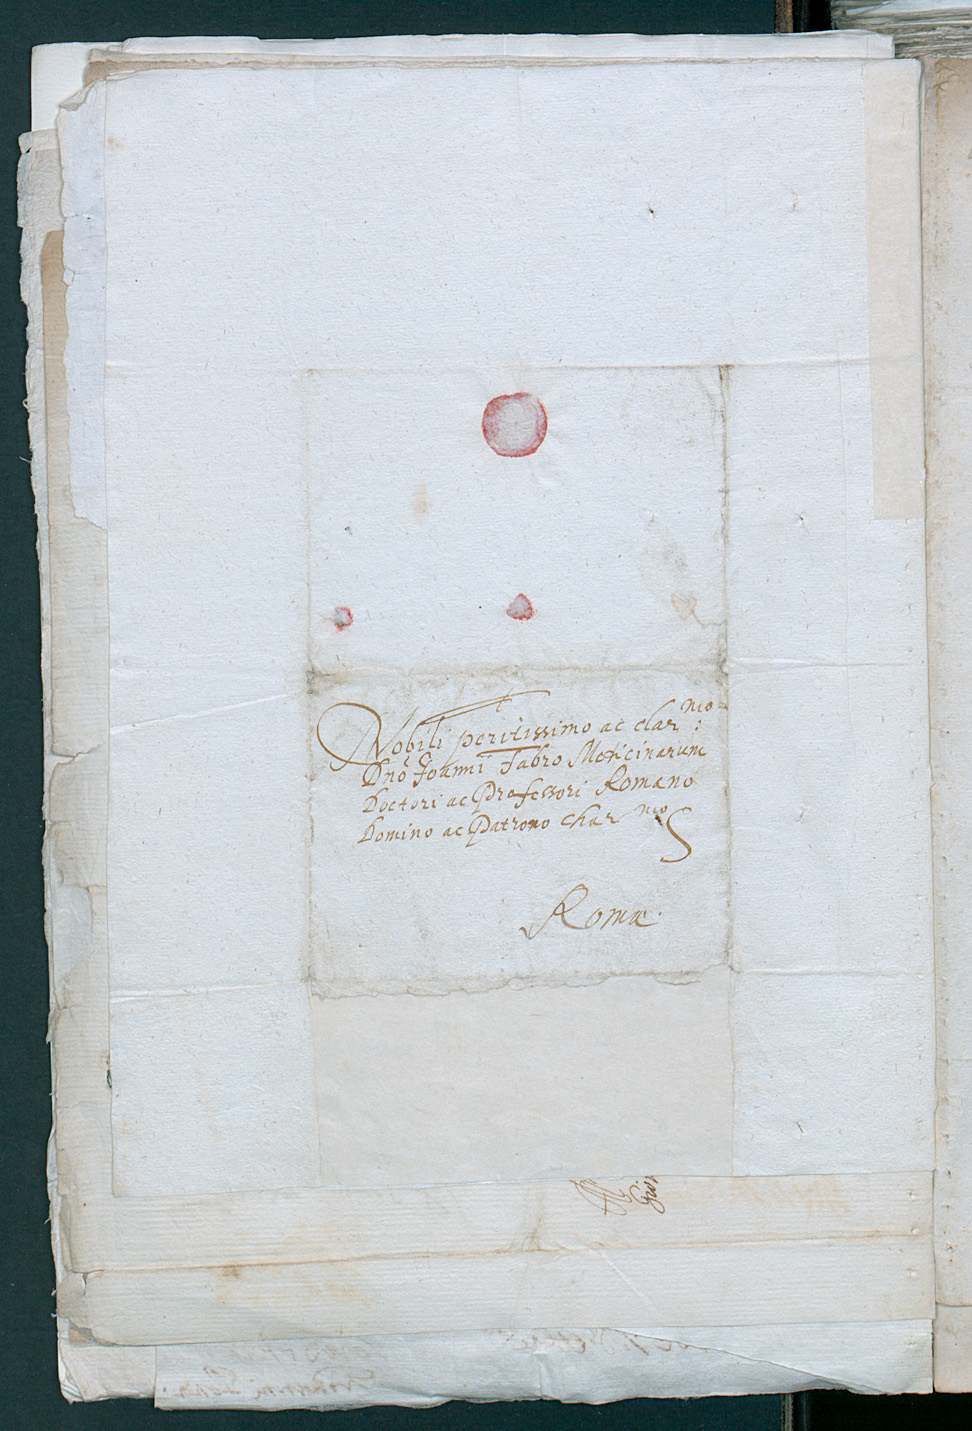 Nobili peritissimo ac clar:mo
Dno Joanni Fabro Medicinarum
Doctori ac Professori Romano
Domino ac Patrono char mo
Romæ.